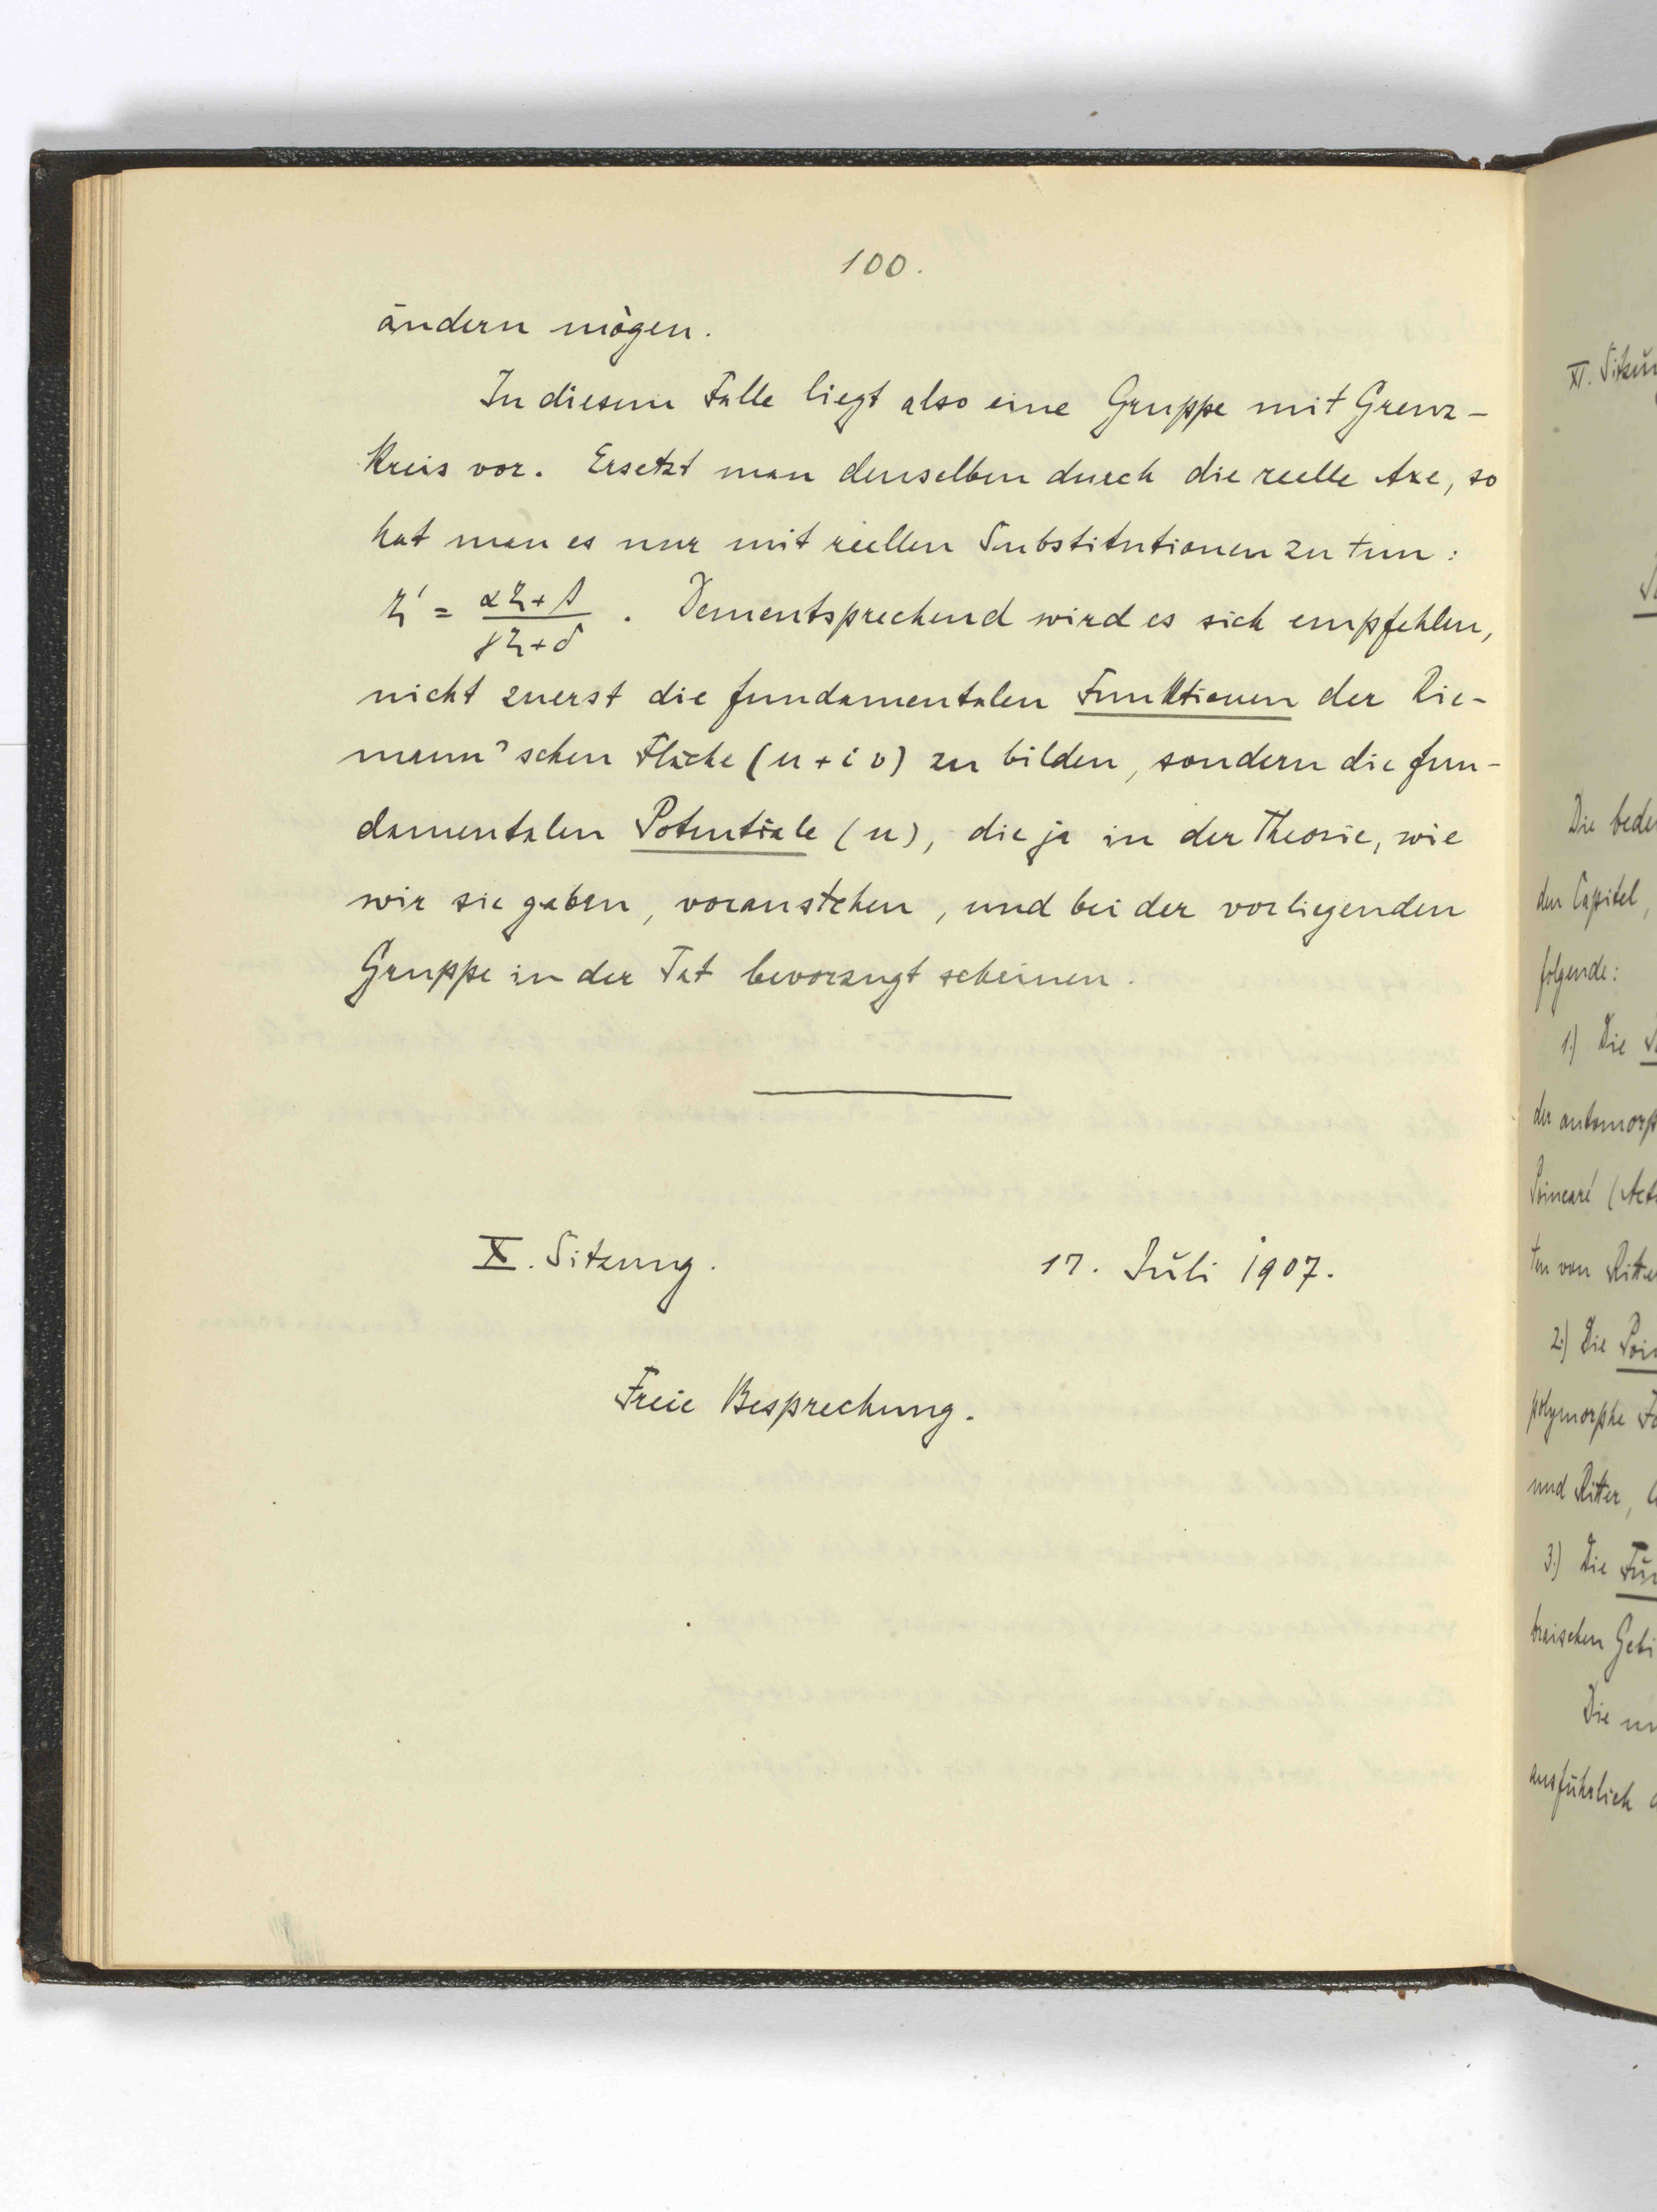 100.
ändern mögen.
In diesem Falle liegt also eine Gruppe mit Grenz-
Kreis vor. Ersetzt man denselben durch die reelle Axe, so
hat man es nur mit reellen Substitutionen zu tun:
ζ' = (αζ+β)/(γζ+δ). Dementsprechend wird es sich empfehlen,
nicht zuerst die fundamentalen Funktionen der Rie-
mann'schen Fläche (u+iv) zu bilden, sondern die fun-
damentalen Potentiale (u), die ja in der Theorie, wie
wir sie gaben, voranstehen, und bei der vorliegenden
Gruppe in der Tat bevorzugt scheinen.
X. Sitzung. 17. Juli 1907.
Freie Besprechung.
XI. Sitzun
Die bede
den Capitel,
folgende:
1.) Die
der automorp
Poincaré (Act
ten von Ritte
2.) Die Poin
polymorphe
und Ritter,
3.) Die
braischen Gebi
Die
ausführlich